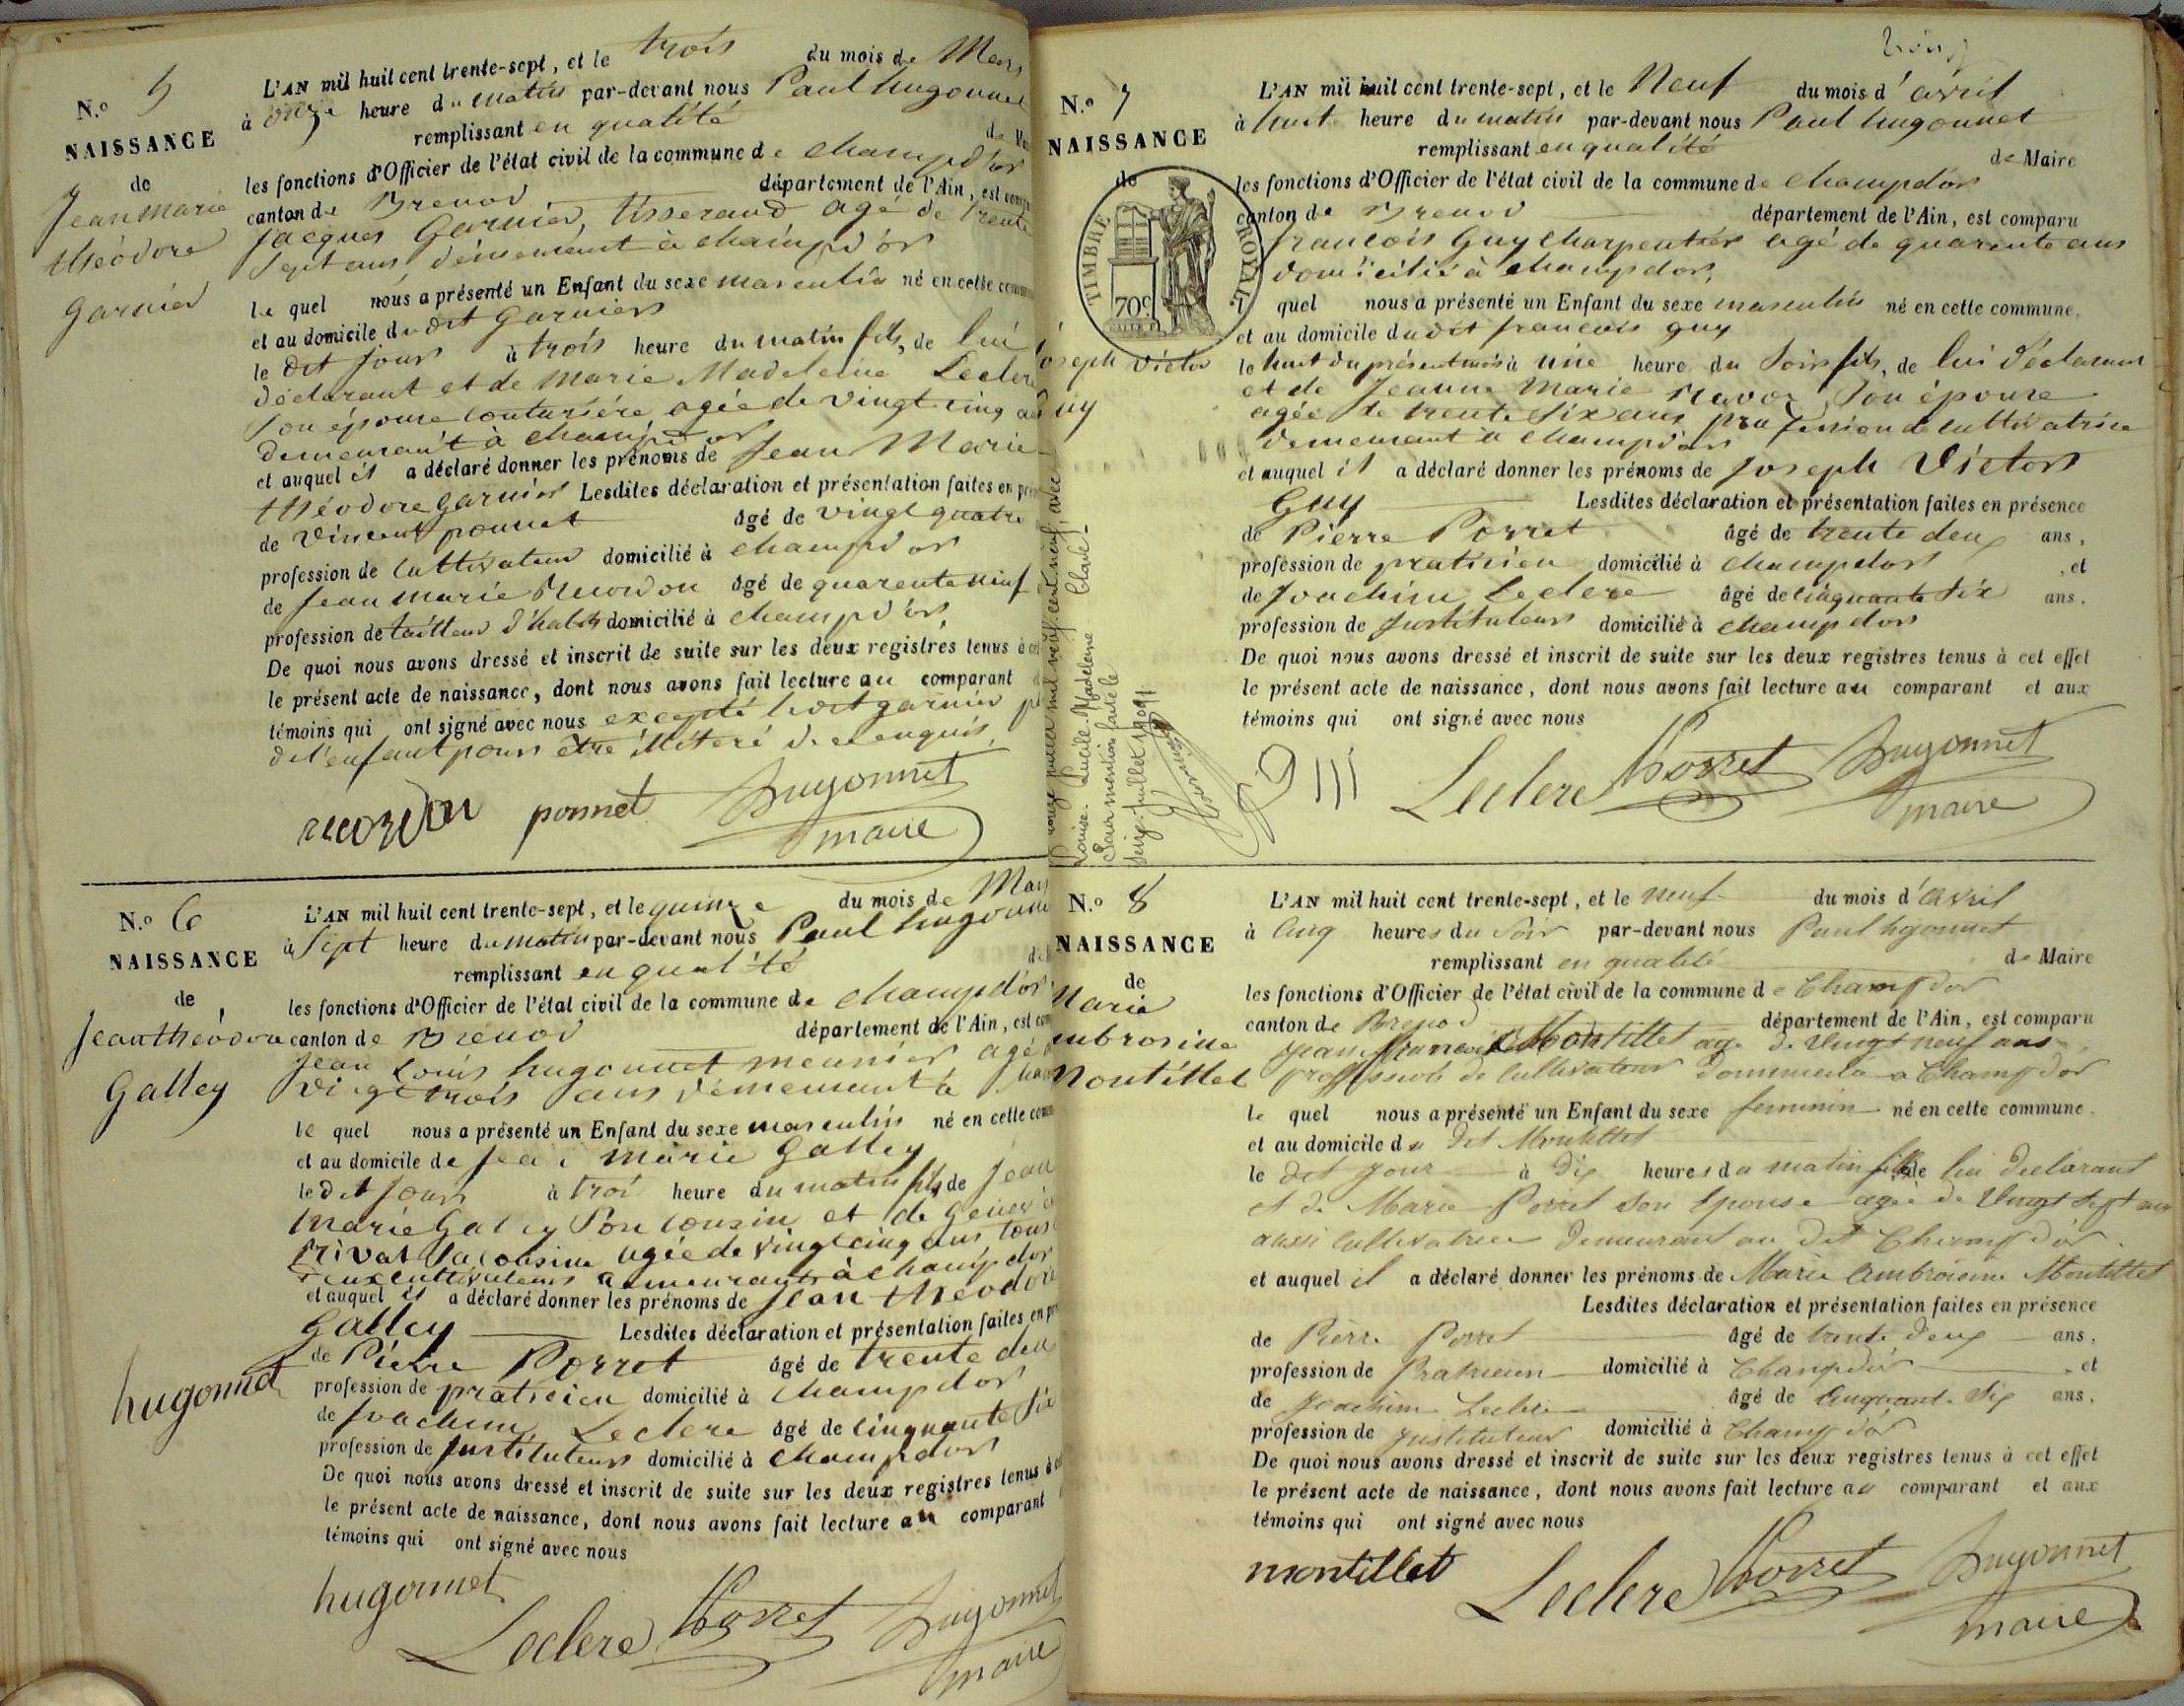 N.o 5
NAISSANCE
de
Jean marie
théodore
garnier
L'AN mil huit cent trente-sept, et le trois du mois de Mars
à onze heure du matin par-devant nous Paul hugonnet
remplissant en qualité de
les fonctions d'Officier de l'état civil de la commune de champd'or
canton de Brenod département de l'Ain, est comp
Jacques Garnier, tisserand agé de trente
sept ans, demeurant à champd'or
le quel nous a présenté un Enfant du sexe masculin né en cette comm
et au domicile du dit Garnier
le dit jour à trois heure du matin fils, de lui
déclarant et de marie Madeleine Leclerc
son épouse couturière agée de vingt cinq ans
demeurant à champd'or
et auquel il a déclaré donner les prénoms de Jean Marie
théodore garnier Lesdites déclaration et présentation faites en pré
de Vincent ponnet âgé de vingt quatre
profession de cultivateur domicilié à champd'or
de Jean marie Recordon âgé de quarente neuf
profession de tailleur d'habits domicilié à champd'or
De quoi nous avons dressé et inscrit de suite sur les deux registres tenus à cet
le présent acte de naissance, dont nous avons fait lecture au comparant
témoins qui ont signé avec nous excepté ledit garnier
de l'enfant pour être illiteré de ce enquis
recordon ponnet hugonnet
maire
N.o 6
NAISSANCE
de
Jean théodore
Galley
hugonnet
L'AN mil huit cent trente-sept, et le quinze du mois de Mars
à Sept heure du matin par-devant nous Paul hugonnet
remplissant en qualité
les fonctions d'Officier de l'état civil de la commune de champd'or
canton de Brenod département de l'Ain, est com
Jean Louis hugonnet meunier agé
vingt trois ans demeurant à
le quel nous a présenté un Enfant du sexe masculin né en cette com
et au domicile de Jean marie Galley
le dit jour à trois heure du matin fils, de Jean
marie Galley son cousin et de
Privat sa cousine agée de vingt cinq ans tous
deux cultivateurs demeurants à champd'or
et auquel il a déclaré donner les prénoms de Jean théodore
Galley Lesdites déclaration et présentation faites en pr
de Pierre Porret âgé de trente deux
profession de praticien domicilié à champdor
de Joachim Leclere âgé de cinquante six
profession de Instituteur domicilié à champdor
De quoi nous avons dressé et inscrit de suite sur les deux registres tenus à cet
le présent acte de naissance, dont nous avons fait lecture au comparant
témoins qui ont signé avec nous
hugonnet
Leclere Porret hugonnet
maire
N.o 7
NAISSANCE
de
TIMBRE ROYAL
70c
Joseph Victor
Guy
Louise-Lucile-Madeleine Clavel-
Pour mention faite le
seize-Juillet 1909
L'AN mil huit cent trente-sept, et le Neuf du mois d'avril
à huit heure du matin par-devant nous Paul hugonnet
remplissant en qualité de Maire
les fonctions d'Officier de l'état civil de la commune de champdor
canton de Brenod département de l'Ain, est comparu
françois Guy charpentier agé de quarente ans
domicilié à champdor
quel nous a présenté un Enfant du sexe masculin né en cette commune,
et au domicile dudit françois guy
le huit du présent mois à une heure du soir fils, de lui déclarant
et de Jeanne Marie Ravod son épouse
agée de trente six ans profession de cultivatrice
demeurant à champd'or
et auquel il a déclaré donner les prénoms de Joseph Victor
Guy Lesdites déclaration et présentation faites en présence
de Pierre Porret âgé de trente deux ans,
profession de praticien domicilié à champdor , et
de Joachim Leclere âgé de cinquante six ans.
profession de Instituteur domicilié à champdor
De quoi nous avons dressé et inscrit de suite sur les deux registres tenus à cet effet
le présent acte de naissance, dont nous avons fait lecture au comparant et aux
témoins qui ont signé avec nous
Leclere Porret hugonnet
maire
N.o 8
NAISSANCE
de
Marie
ambrosine
Montillet
L'AN mil huit cent trente-sept, et le neuf du mois d'avril
à cinq heures du soir par-devant nous Paul hgonnet
remplissant en qualité de Maire
les fonctions d'Officier de l'état civil de la commune de Champdor
canton de Brenod département de l'Ain, est comparu
Jean françois Montillet age de vingt neuf ans
proffession de cultivateur à Champd'or
le quel nous a présenté un Enfant du sexe feminin né en cette commune.
et au domicile du dit Montillet
le dit jour à dix heures du matin fille de lui declarant
et de Marie Porret son épouse agée de vingt sept ans
aussi cultivatrice demeurant au dit Champd'or
et auquel il a déclaré donner les prénoms de Marie ambroisine Montillet
Lesdites déclaration et présentation faites en présence
de Pierre Porret âgé de trente deux ans,
profession de Praticien domicilié à Champdor , et
de Joachim Leclere âgé de cinquante Six ans.
profession de instituteur domicilié à Champd'or
De quoi nous avons dressé et inscrit de suite sur les deux registres tenus à cet effet
le présent acte de naissance, dont nous avons fait lecture au comparant et aux
témoins qui ont signé avec nous
montillet Leclere Porret hugonnet
maire